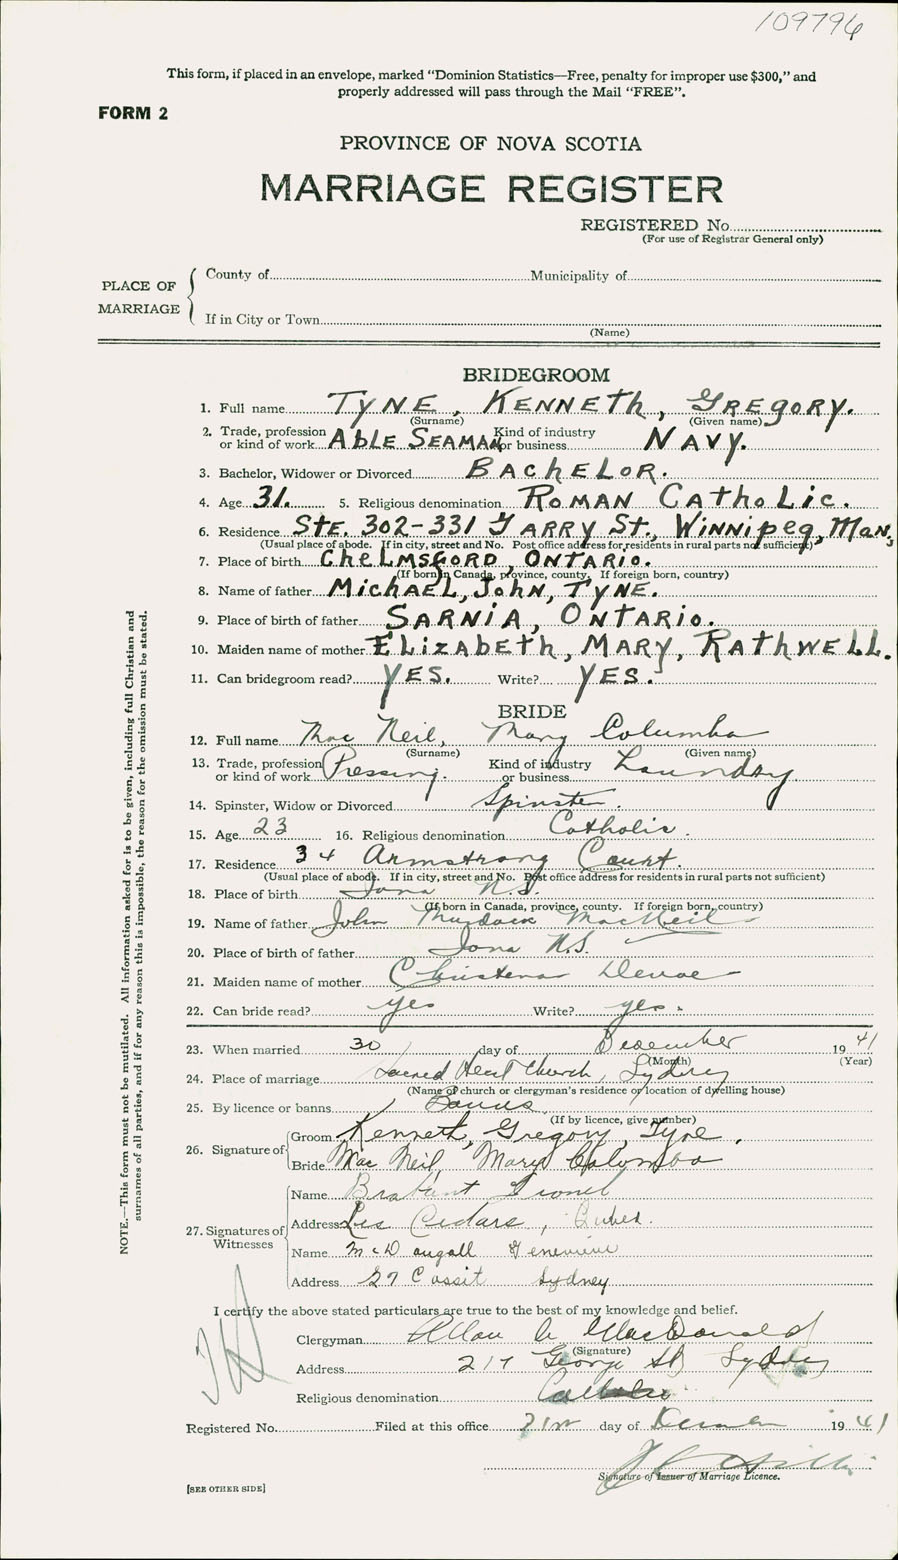 109796
This form, if placed in an envelope, marked "Dominion Statistics—Free, penalty for improper use $300," and
properly addressed will pass through the Mail "FREE".
FORM 2
PROVINCE OF NOVA SCOTIA
MARRIAGE REGISTER
REGISTERED No.
(For use of Registrar General only)
PLACE OF MARRIAGE
County of Municipality of
If in City or Town
(Name)
BRIDEGROOM
1. Full name TYNE, KENNETH, GREGORY.
(Surname) (Given name)
2. Trade, profession or kind of work ABLE SEAMAN Kind of industry or business NAVY.
3. Bachelor, Widower or Divorced BACHELOR.
4. Age 31. 5. Religious denomination ROMAN CATHOLIC.
6. Residence STE. 302-331 GARRY ST., WINNIPEG, MAN,
(Usual place of abode. If in city, street and No. Post office address for residents in rural parts not sufficient)
7. Place of birth CHELMSFORD, ONTARIO.
(If born in Canada, province, county. If foreign born, country)
8. Name of father MICHAEL, JOHN, TYNE.
9. Place of birth of father SARNIA, ONTARIO.
10. Maiden name of mother ELIZABETH, MARY, RATHWELL.
11. Can bridegroom read? YES. Write? YES.
BRIDE
12. Full name Mac Neil, Mary Columba
(Surname) (Given name)
13. Trade, profession or kind of work Pressing. Kind of industry or business Laundry
14. Spinster, Widow or Divorced Spinster.
15. Age 23 16. Religious denomination Catholic.
17. Residence 34 Armstrong Court.
(Usual place of abode. If in city, street and No. Post office address for residents in rural parts not sufficient)
18. Place of birth Iona N.S.
(If born in Canada, province, county. If foreign born, country)
19. Name of father John Murdock MacNeil
20. Place of birth of father Iona N.S.
21. Maiden name of mother Christena Devoe
22. Can bride read? yes Write? yes.
23. When married 30 day of December 1941
(Month) (Year)
24. Place of marriage Sacred Heart Church, Sydney
(Name of church or clergyman's residence or location of dwelling house)
25. By licence or banns Banns
(If by licence, give number)
26. Signature of
Groom Kenneth, Gregory, Tyne.
Bride Mac Neil, Mary Columba
27. Signatures of Witnesses
Name Brabant Lionel
Address Les Cedars, Quebec.
Name McDougall Genevieve
Address 27 Cossit Sydney
I certify the above stated particulars are true to the best of my knowledge and belief.
Clergyman Allan A MacDonald
(Signature)
Address 217 George St Sydney
Religious denomination Catholic
Registered No. Filed at this office 31st day of December 1941
Signature of Issuer of Marriage Licence.
[SEE OTHER SIDE]
NOTE.—This form must not be mutilated. All information asked for is to be given, including full Christian and
surnames of all parties, and if for any reason this is impossible, the reason for the omission must be stated.